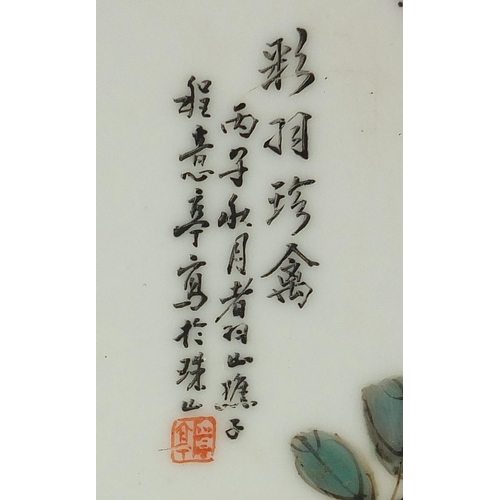 彩羽珍禽
丙子月翥山樵子
程意亭寫於珠山